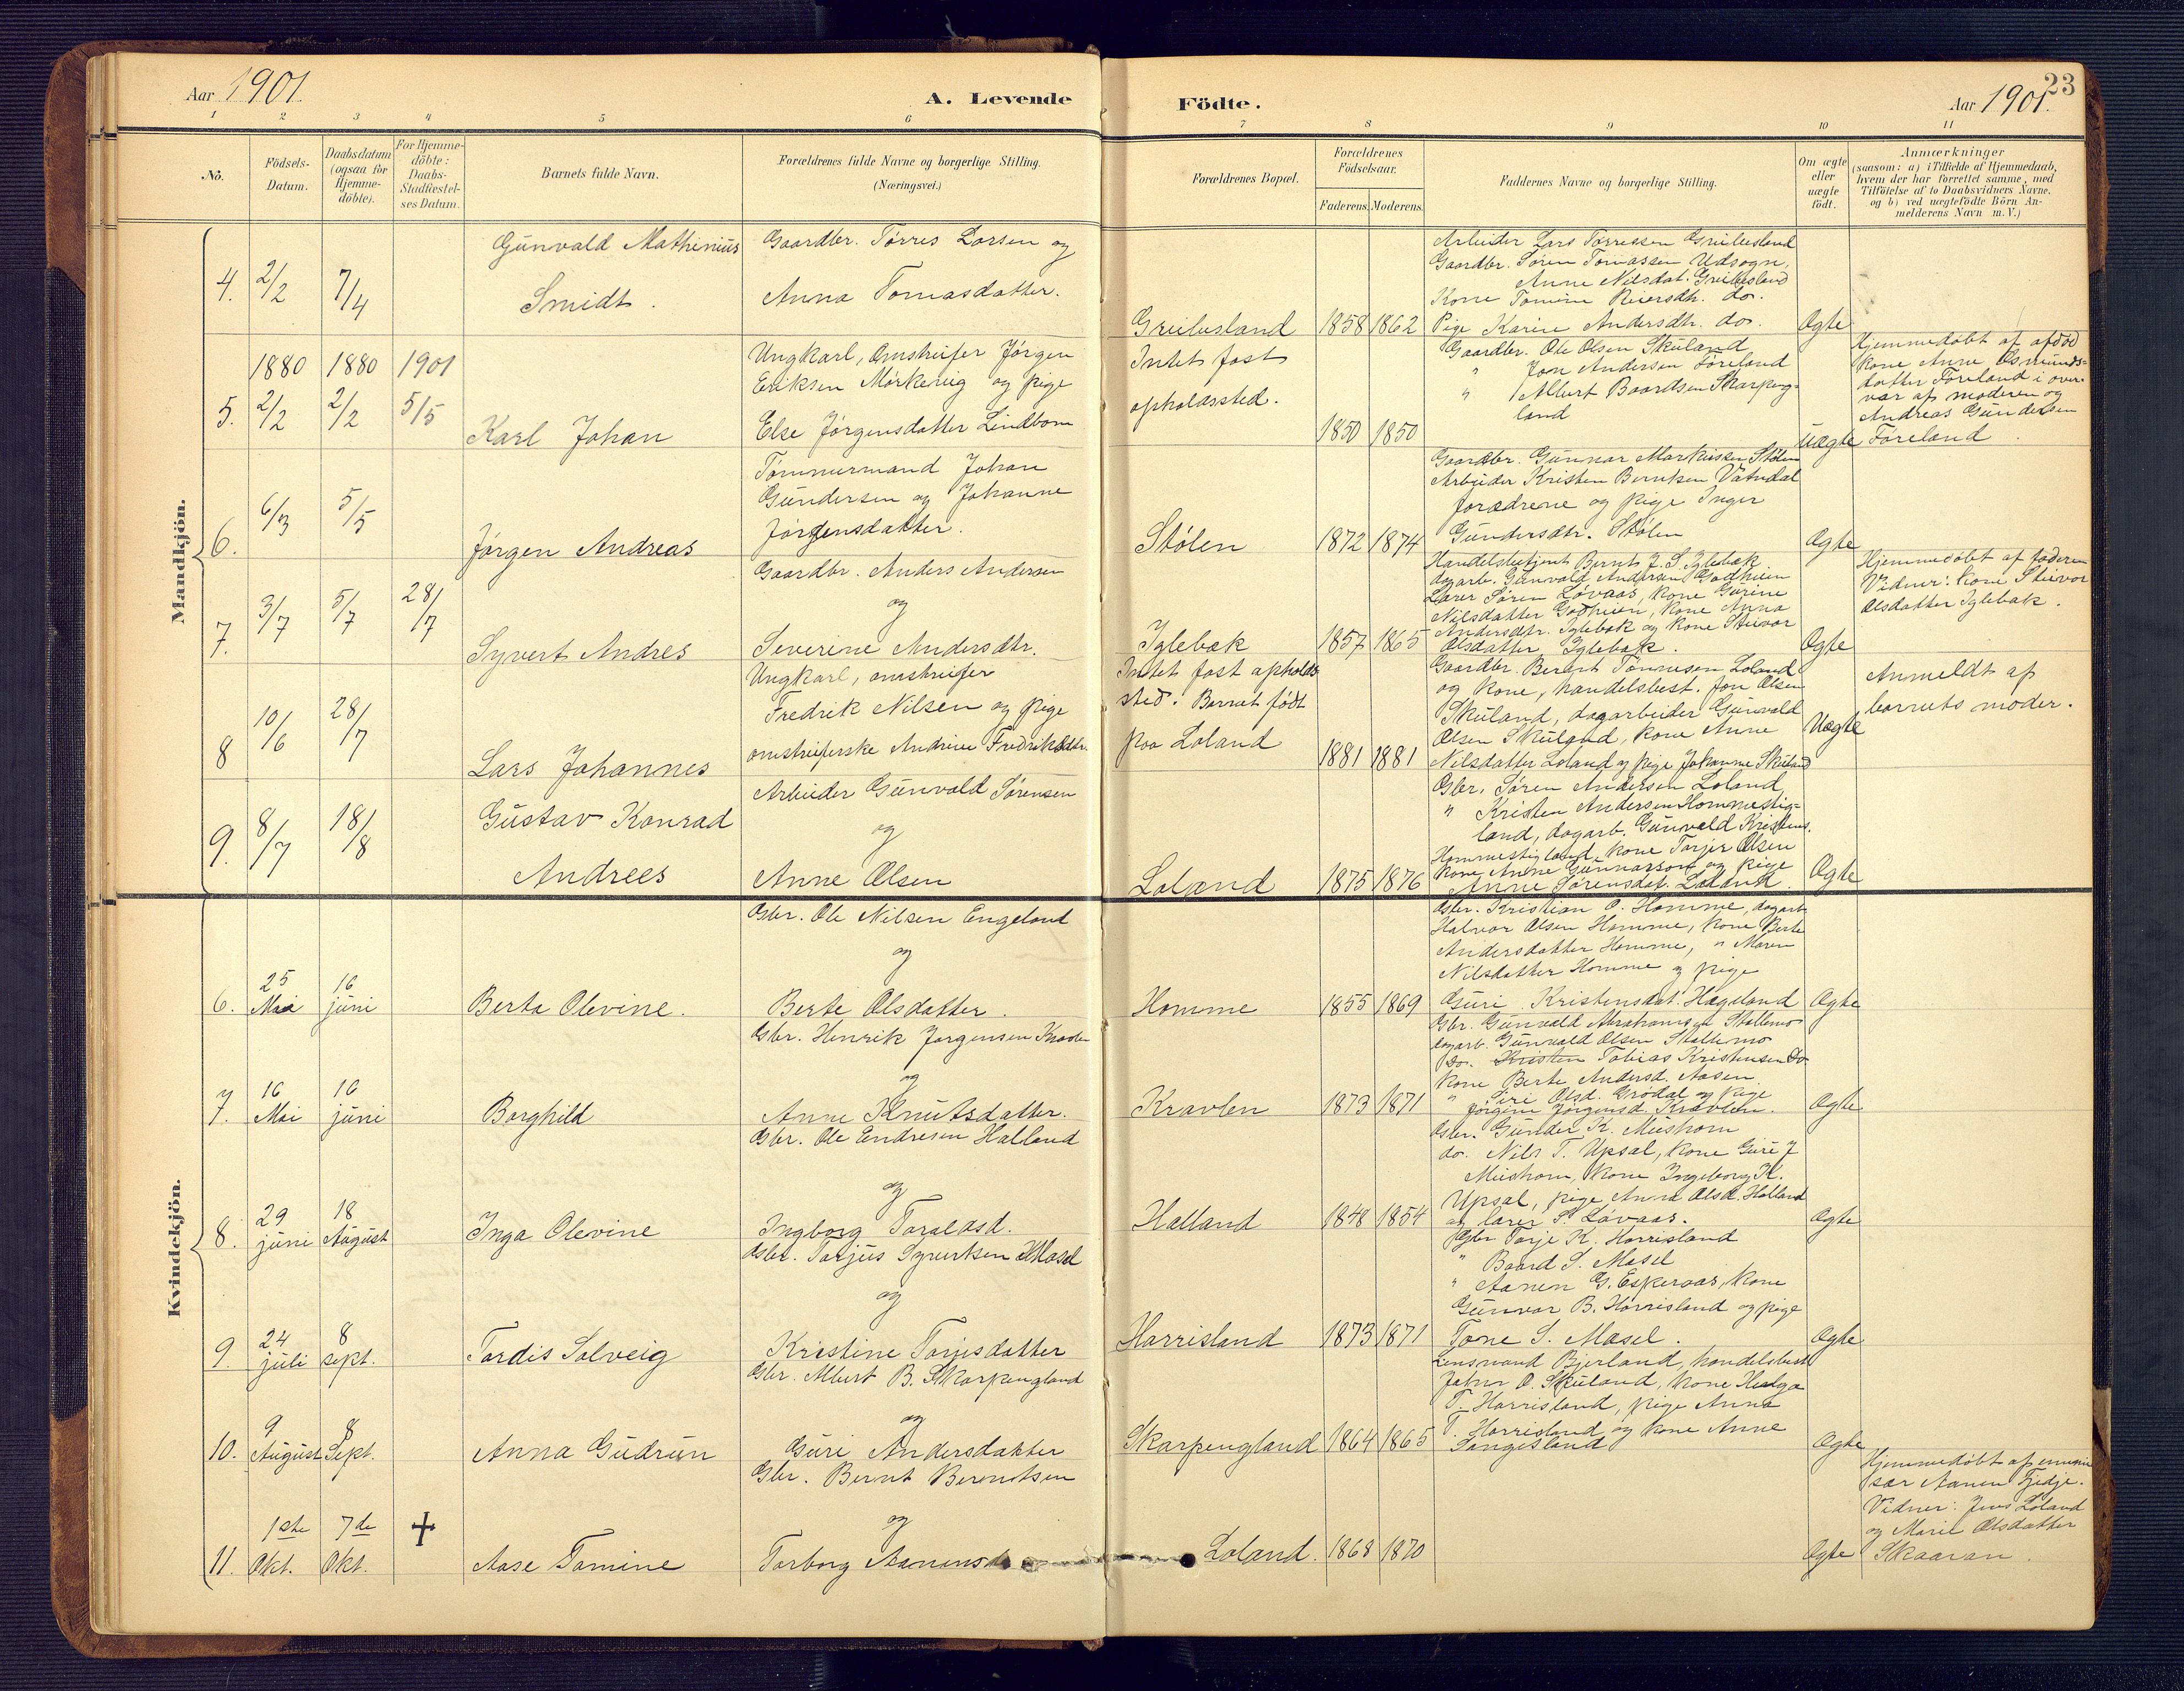 Aar 1901.
A. Levende
Födte.
Aar 1901.
23
1 2 3 4 5 6
7 8 9 10 11
No.
Födsels-
Datum.
Daabsdatum
(ogsaa for
Hjemme-
döbte).
For Hjemme-
döbte:
Daabs-
Stadfæstel-
ses Datum.
Barnets fulde Navn.
Forældrenes fulde Navne og borgerlige Stilling.
(Næringsvei.)
Forældrenes Bopæl.
Forældrenes
Födselsaar.
Faderens. Moderens.
Faddernes Navne og borgerlige Stilling.
Om ægte
eller
uægte
födt.
Anmærkninger
(saasom: a) i Tilfælde af Hjemmedaab,
hvem der har forrettet samme, med
Tilföielse af to Daabsvidners Navne,
og b) ved uægtefödte Börn An-
melderens Navn m. V.)
Mandkjön.
4. 2/2 7/4
Gunvald Mathinius
Smidt.
Gaardbr. Tørres Larsen og
Anna Tomasdatter.
Greibesland 1858 1862
Arbeider Lars Tørressen Greibesland
Gaardbr. Søren Tomassen Udsogne,
Anne Nilsdat. Greibesland
Kone Tomine Reiersdtr. do.
Pige Karin Andersdtr. do.
Ægte
1880 1880 1901
5. 2/2 2/2 5/5
Karl Johan
Ungkarl, Omstreifer Jørgen
Eriksen Mørkeriig og pige
Else Jørgensdatter Lindbom
Intet fast
opholdssted.
1850 1850
Gaardbr. Ole Olsen Skuland
" Jon Andersen Føreland
" Albert Baardsen Skarpeng-
land
Uægte
Hjemmedøbt af afdød
kone Anne Osmunds-
datter Føreland i over-
vær af moderen og
Andreas Gundersen
Føreland.
6. 6/3 5/5
Jørgen Andreas
Tømmermand Johan
Gundersen og Johanne
Jørgensdatter.
Stølen 1872 1874
Gaardbr. Gunnar Markussen Stølen
Arbeider Kristen Berntsen Vatndal
forældrene og pige Inger
Gundersdtr. Stølen
Ægte
7. 3/7 5/7 28/7
Syvert Andres
Gaardbr. Anders Andersen
og
Severine Andersdtr.
Iglebæk 1857 1865
Handelsbetjent Bernt J. S. Iglebæk
dagarb. Gunvald Andersen Godheien
Lærer Søren Løvaas, kone Gurine
Nilsdatter Godheien, kone Anna
Andersdtr. Iglebæk og kone Steivor
Olsdatter Iglebæk.
Ægte
Hjemmedøbt af faderen
Vidner: kone Steivor
Olsdatter Iglebæk.
8 10/6 28/7
Lars Johannes
Ungkarl, omstreifer
Fredrik Nilsen og pige
omstreiferske Andrine Fredriksdtr.
Intet fast opholds
sted. Barnet født
paa Loland
1881 1881
Gaardbr. Berent Tønnesen Loland
og kone, handelsbest. Jon Olsen
Skuland, dagarbeider Gunvald
Olsen Skuland, kone Anne
Nilsdatter Loland og pige Johanne Skuland
Uægte
Anmeldt af
barnets moder.
9. 8/7 18/8
Gustav Konrad
Andrees
Arbeider Gunvald Sørensen
og
Anne Olsen
Loland 1875 1876
Gbr. Søren Andersen Loland,
" Kristen Andersen Hommestig-
land, dagarb. Gunvald Kristens.
Hommestigland, kone Torjer Olsen
kone Anne Gunnarson og pige
Anne Sørensdat. Loland.
Ægte
Kvindekjön.
6. 25 Mai 16 juni
Berta Olevine.
Gbr. Ole Nilsen Engeland
og
Berte Olsdatter.
Homme 1855 1869
Gbr. Kristian O. Homme, dagarb.
Halvor Olsen Homme, kone Berte
Andersdatter Homme, " Maren
Nilsdatter Homme og pige
Guri Kristensdat. Hægeland
Ægte
7. 16 Mai 16 juni
Borghild
Gbr. Henrik Jørgensen Kravlen
og
Anne Knutsdatter.
Kravlen 1873 1871
Gbr. Gunvald Abrahamsen Stallemo
dagarb. Gunvald Olsen Stallemo
Do. Kristen Tobias Kristensen Do
kone Berte Andersd. Aasen
" Siri Olsd. Grødal og pige
Jørgine Jørgensd. Kravlen.
Ægte
8. 29 juni 18 August
Inga Olevine
Gbr. Ole Endresen Halland
og
Ingborg Taraldsd.
Halland 1848 1854
Gbr. Gunder K. Meshom
do. Nils T. Upsal, kone Guri J
Meshom, kone Ingeborg K.
Upsal, pige Anna Olsd. Halland
og lærer S. Løvaas.
Ægte
9. 24 juli 8 sept.
Tordis Solveig
Gbr. Tarjus Syvertsen Mosel
og
Kristine Torjusdatter
Harrisland 1873 1871
Gbr Torje K. Harrisland
" Baard S. Mosel
" Aanen G. Eskeraas, kone
Gunvor B. Harrisland og pige
Tone S. Mosel.
Ægte
10. 9 August 8 Sept.
Anna Gudrun
Gbr. Albert B. Skarpengland
og
Guri Andersdatter
Skarpengland 1864 1865
Lensmand Bjerland, handelsbest
John O. Skuland, kone Helga
T. Harrisland, pige Anna
T. Harrisland og kone Anne
Sangesland
Ægte
11. 1ste Okt. 7de Okt. +
Aase Tomine
Gbr. Bernt Berentsen
og
Torborg Aanensd
Loland. 1868 1870
Ægte
Hjemmedøbt af emmis
sær Aanen Fjedje.
Vidner: Jens Loland
og Maril Olsdatter
Skaaran.